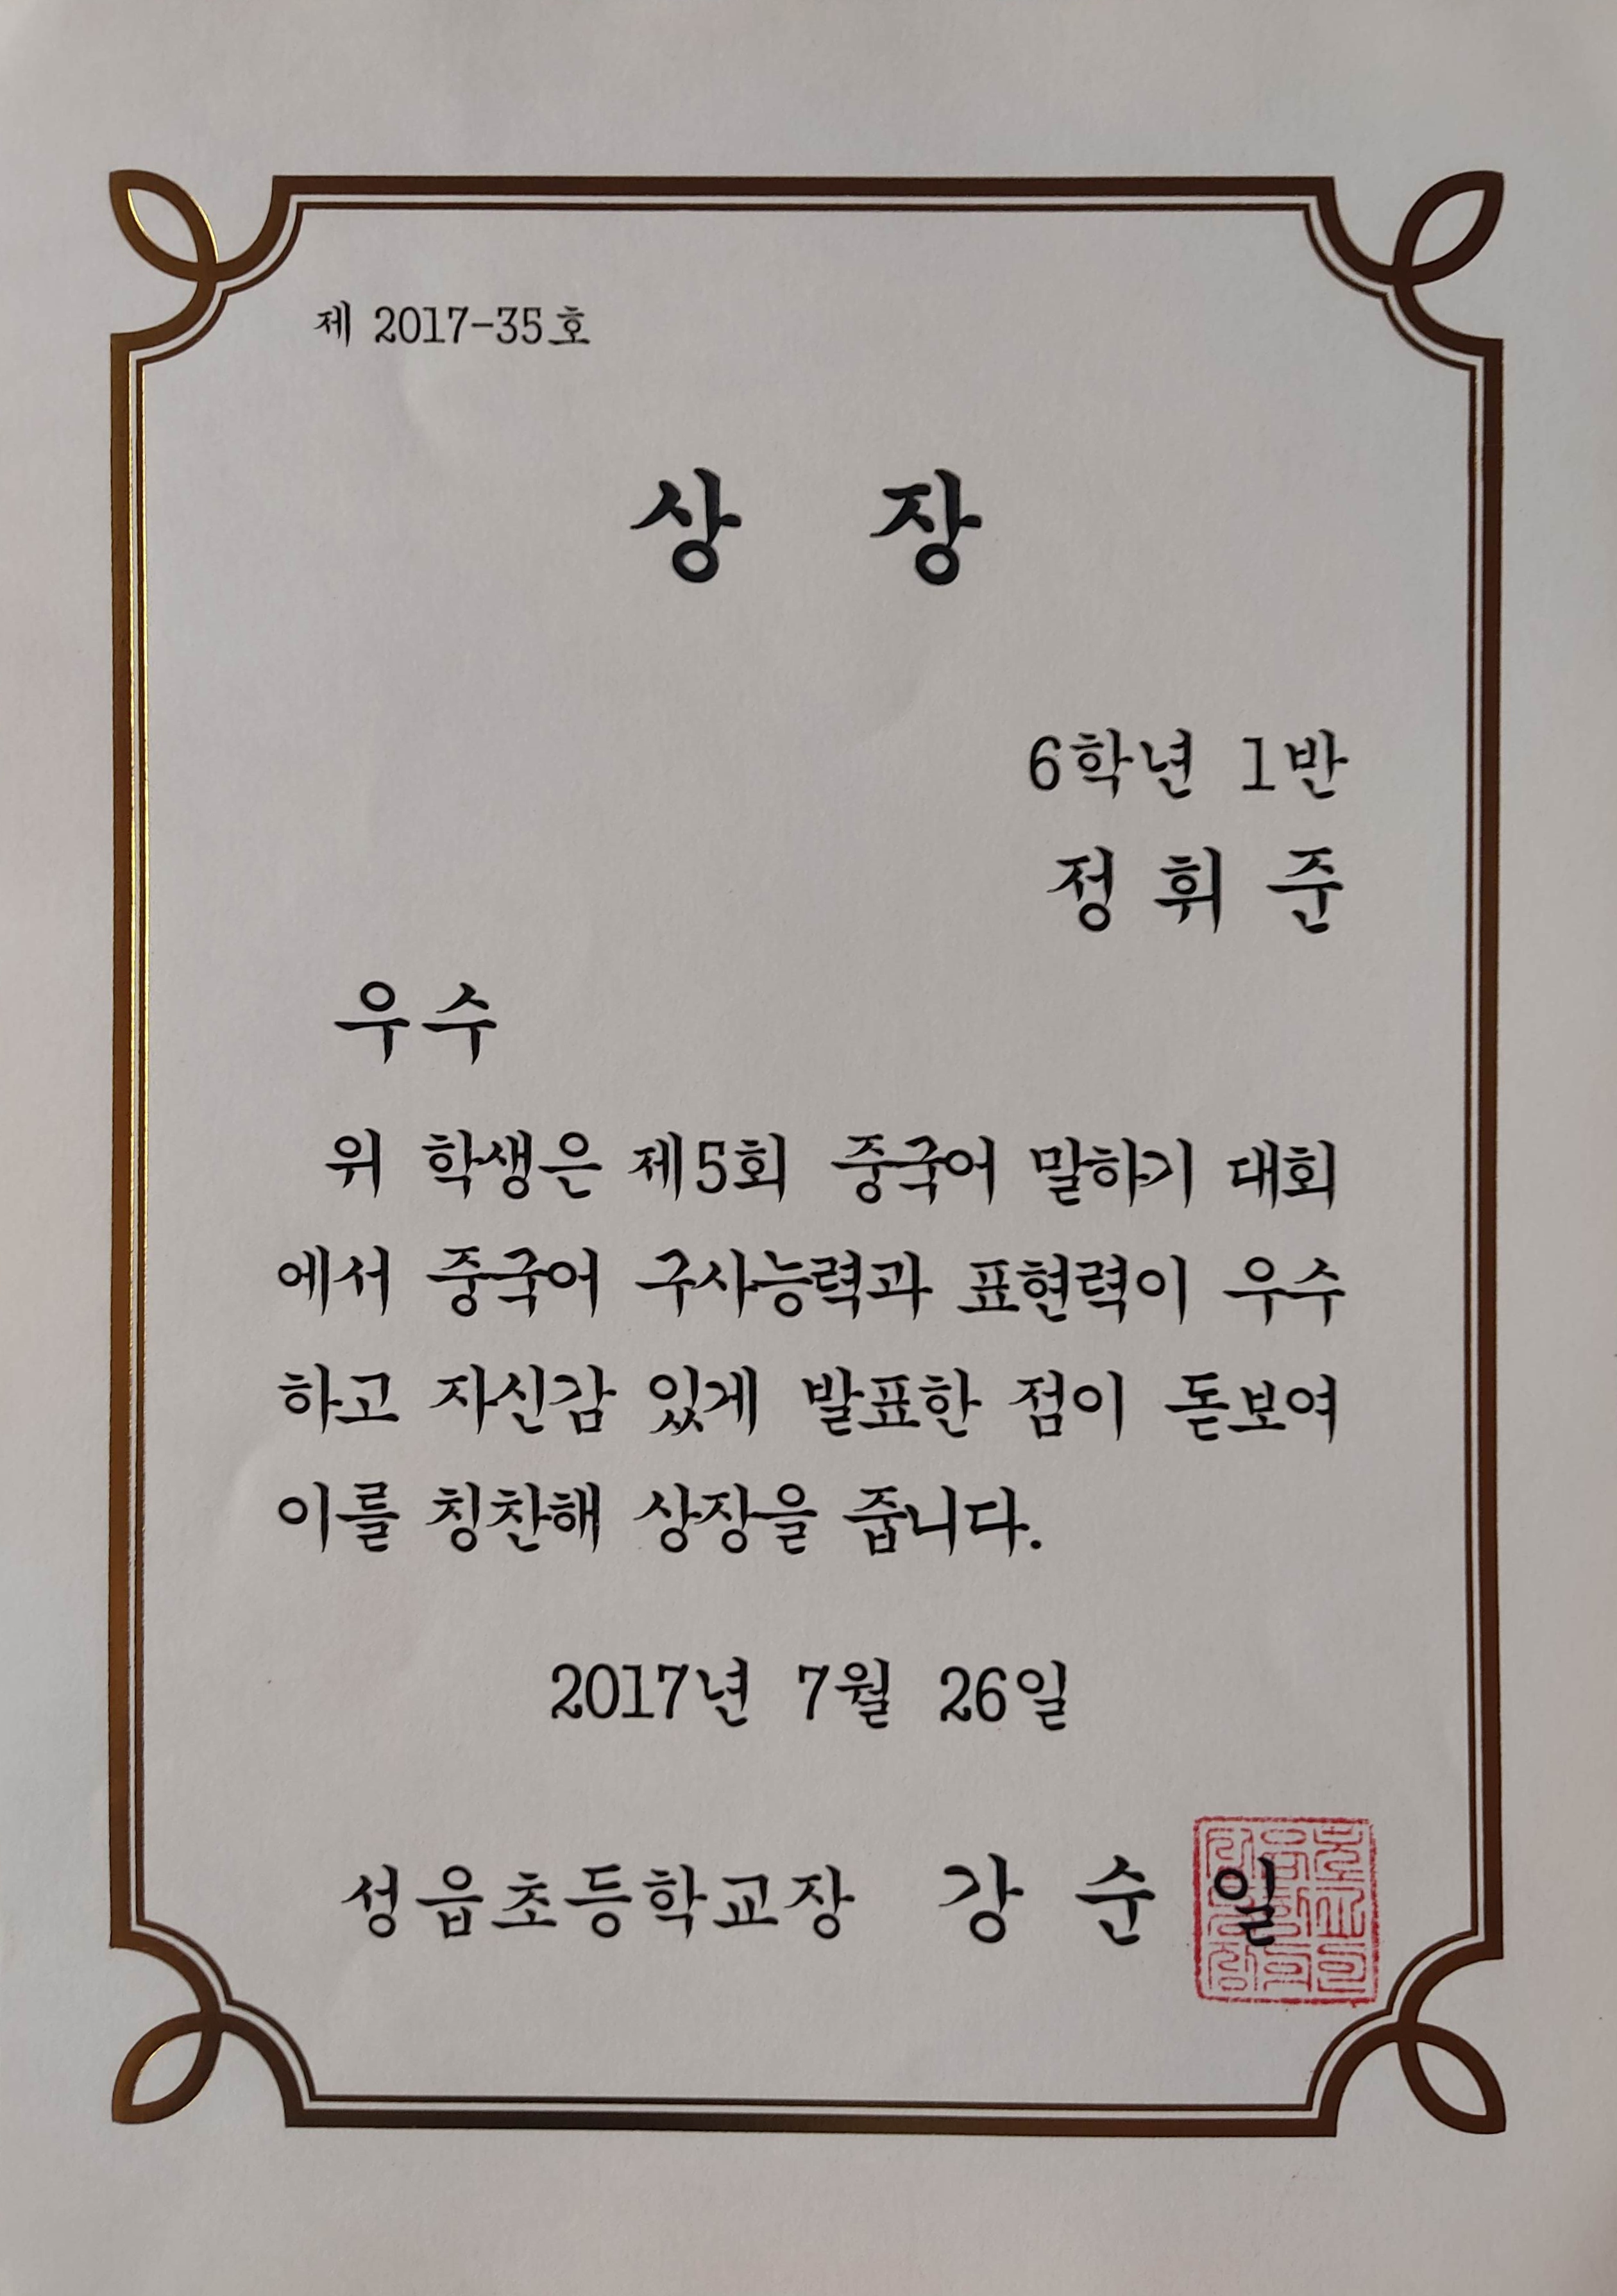 제 2017-35호
상 장
6학년 1반
정 휘 준
우수
위 학생은 제5회 중국어 말하기 대회
에서 중국어 구사능력과 표현력이 우수
하고 자신감 있게 발표한 점이 돋보여
이를 칭찬해 상장을 줍니다.
2017년 7월 26일
성읍초등학교장 강 순 일